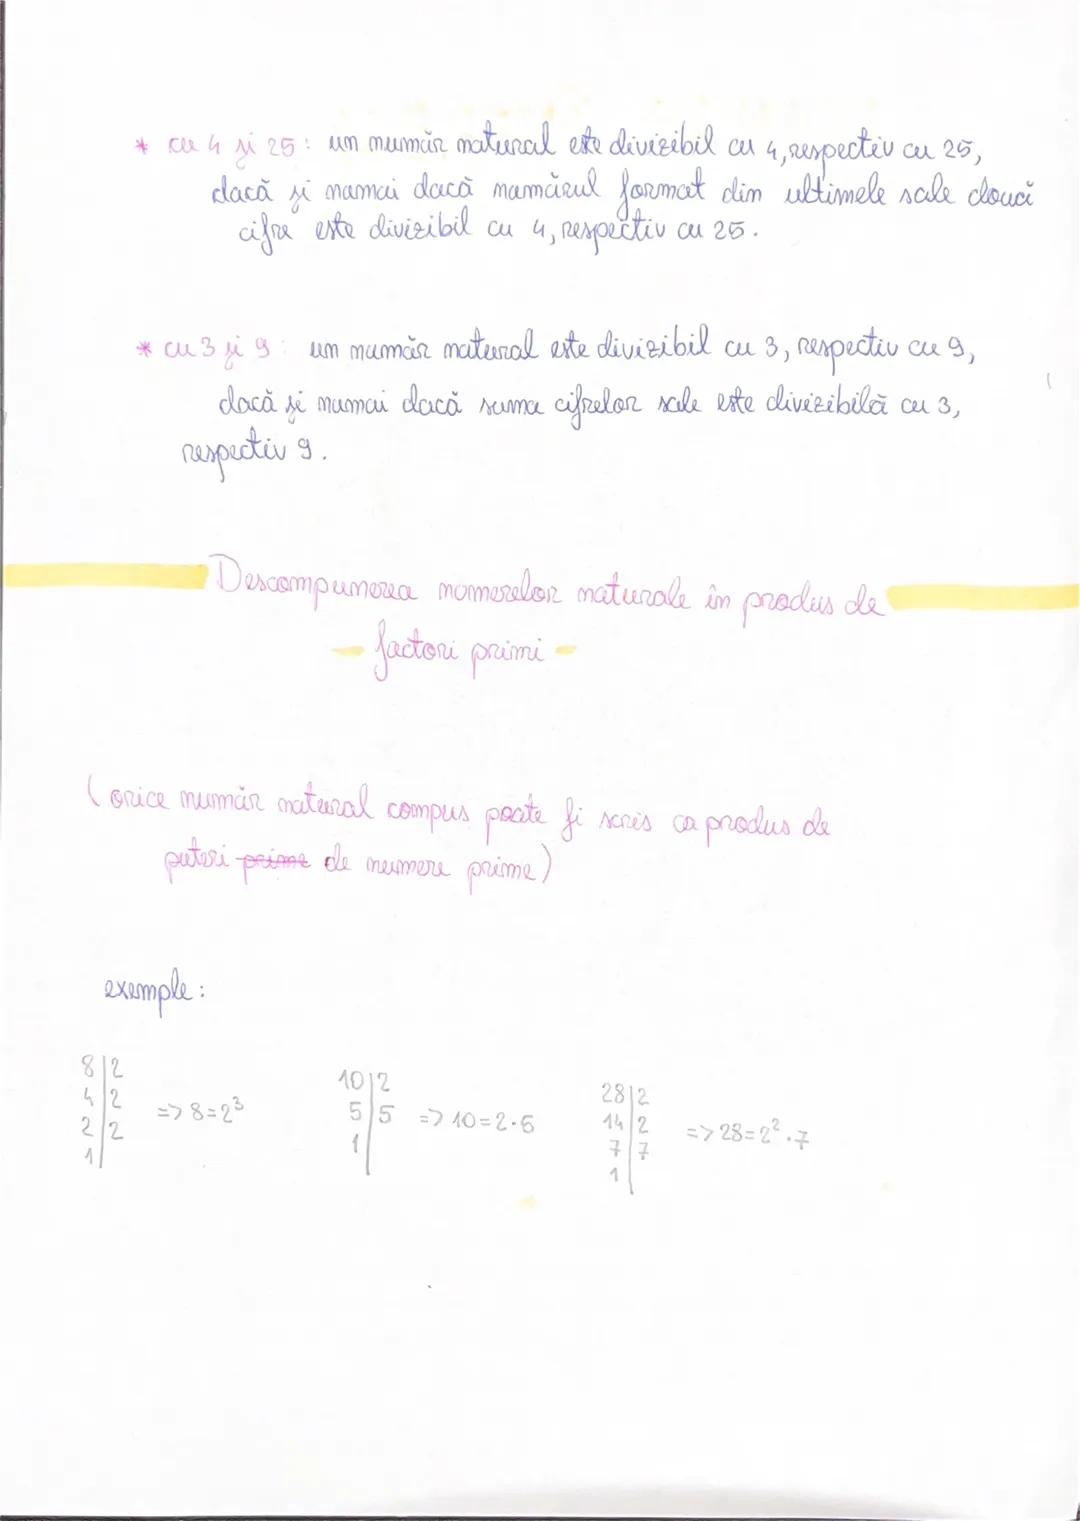 * cu 4 și 25: un număr natural este divizibil cu 4, respectiv cu 25,
dacă și numai dacă numărul format din ultimele sale două
cifre este divizibil cu 4, respectiv cu 25.
* cu 3 și 9: un număr natural este divizibil cu 3, respectiv cu 9,
dacă și numai dacă suma cifrelor sale este divizibilă cu 3,
respectiv 9.
Descompunerea numerelor naturale în produs de
- factori primi -
(orice număr natural compus poate fi scris ca produs de
puteri prime de numere prime)
exemple:
8|2
4|2
2|2
1|
=> 8=2³
10|2
5|5
1|
=> 10=2·5
28|2
14|2
7|7
1|
=> 28=2²·7